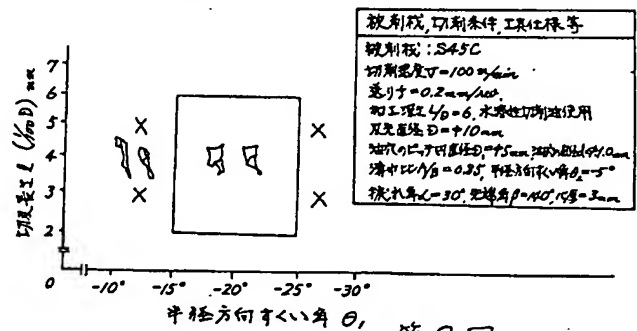 被削材、切削条件、工具仕様等
被削材:S45C
切削速度V=100m/min
送りf=0.2mm/rev.
加工深さL/D=6、水溶性切削油使用
刃先直径D=φ10mm
油穴のピッチ円直径D₁=φ5mm
溝巾比A/B=0.85、半径方向すくい角θ₂=-5°
捩れ角α=30°、先端角β=140°、心厚=3mm
切刃長さl(1/100D)mm
7
6
5
4
3
2
0
-10° -15° -20° -25° -30°
半径方向すくい角θ₁